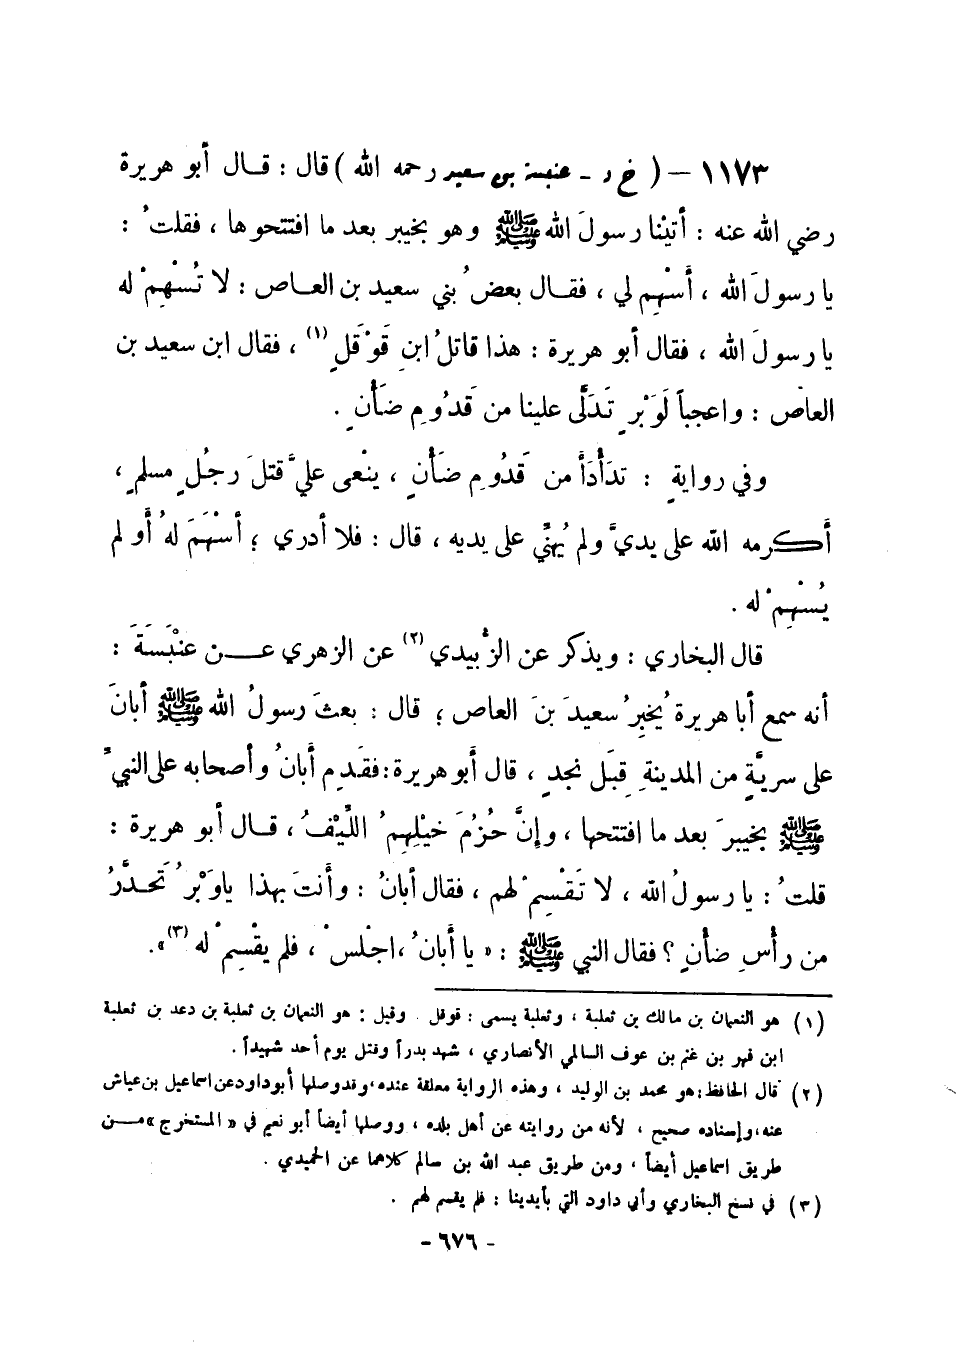 ١١٧٣ – ( خ د - عنبسة بن سعيد رحمه الله ) قال : قال أبو هريرة
رضي الله عنه : أتيْنا رسولَ الله ﷺ وهو بخيبر بعد ما افتتحوها ، فقلتُ :
يا رسولَ الله ، أَسْهِم لي ، فقال بعضُ بني سعيد بن العاص : لا تُسْهِمْ له
يا رسولَ الله ، فقال أبو هريرة : هذا قاتلُ ابنِ قَوْقَلٍ (١) ، فقال ابن سعيد بن
العاص : واعجباً لَوَبْرٍ تَدَلَّى علينا من قَدُومِ ضَأْنٍ .
وفي روايةٍ : تدَأْدَأَ من قَدُومِ ضَأْنٍ ، ينْعى عليَّ قتلَ رجُلٍ مسلمٍ ،
أَكرمه الله على يديَّ ولم يُهِنِّي على يديه ، قال : فلا أدري ؛ أسْهَمَ لهُ أَو لم
يُسْهِمْ له .
قال البخاري : ويذكر عن الزُّبيدي (٢) عن الزهري عن عنْبَسَةَ :
أنه سمع أبا هريرة يُخبِرُ سعيدَ بنَ العاص ؛ قال : بعثَ رسولُ الله ﷺ أبانَ
على سريَّةٍ من المدينةِ قِبَل نجدٍ ، قال أبو هريرة : فقَدِم أَبانُ وأصحابه على النبيِّ
ﷺ بخيبرَ بعد ما افتتحها ، وإنَّ حُزُمَ خيْلِهِمُ اللِّيْفُ ، قال أبو هريرة :
قلتُ : يا رسولُ الله ، لا تَقْسِمْ لهم ، فقال أبانُ : وأَنتَ بهذا ياوَبْرُ تَحدَّرُ
من رأْسِ ضأْنٍ ؟ فقال النبي ﷺ : « يا أَبانُ ، اجْلسْ ، فلم يقْسِمْ له (٣) ».
(١) هو النعمان بن مالك بن ثعلبة ، وثعلبة يسمى : قوقل . وقيل : هو النعمان بن ثعلبة بن دعد بن ثعلبة
ابن فهر بن غنم بن عوف السالمي الأنصاري ، شهد بدراً وقتل يوم أحد شهيداً .
(٢) قال الحافظ : هو محمد بن الوليد ، وهذه الرواية معلقة عنده ، وقد وصلها أبو داود عن اسماعيل بن عياش
عنه ، وإسناده صحيح ، لأنه من روايته عن أهل بلده ، ووصلها أيضاً أبو نعيم في « المستخرج » من
طريق اسماعيل أيضاً ، ومن طريق عبد الله بن سالم كلاهما عن الحميدي .
(٣) في نسخ البخاري وأبي داود التي بأيدينا : فلم يقسم لهم .
- ٦٧٦ -